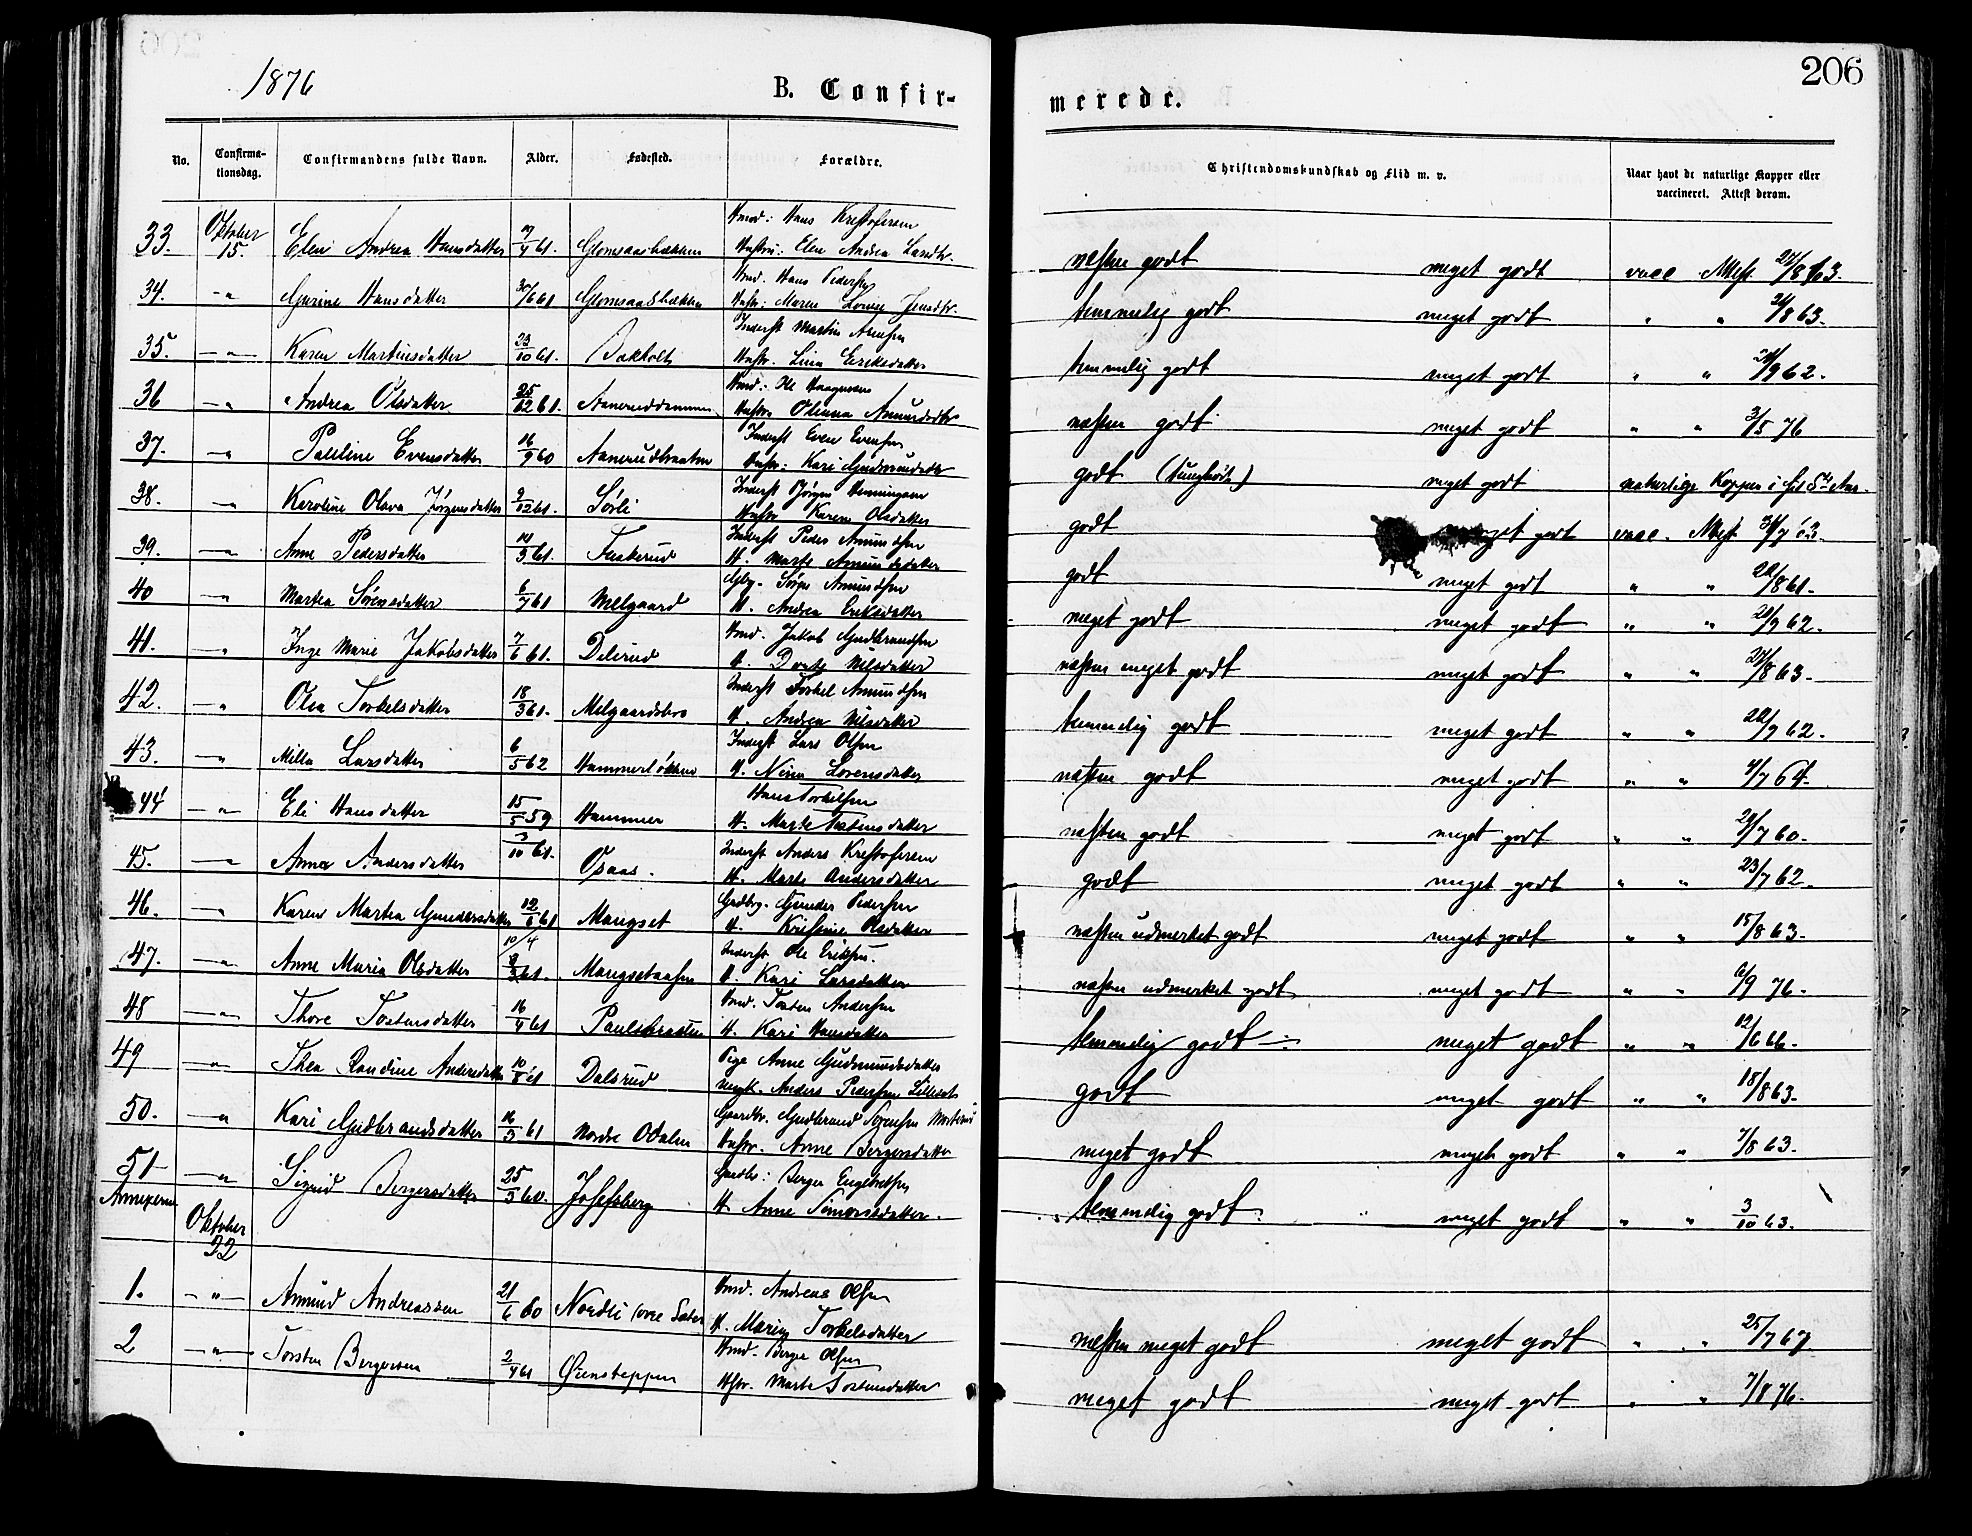 206
1876
B. Confirmerede.
No. Confirmationsdag. Confirmandens fulde Navn. Alder. Fødested. Forældre. Christendomskundskab og Flid m. v. Naar havt de naturlige Kopper eller vaccineret. Attest derom.
33. Oktober 15. Elen Andrea Hansdatter 61. Glomsaasbækken Hans Kristofersen Hustru: Elen Andrea næsten godt meget godt vacc Attest 63.
34. -"- Gurine Hansdatter 30/6 61 Glomsaasbækken Hans Pedersen Hustr: Maren temmelig godt meget godt " " 63.
35. -"- Karen Martinsdatter 23/10 61. Bakholt Inderst Martin Arnesen Hustr. Lina Eriksdatter temmelig godt meget godt " " 62.
36 -"- Andrea Olsdatter 25/12 61. Hmd: Ole Hustr. Oliana næsten godt meget godt " " 3/5 76
37. -"- Pauline Evensdatter 16/9 60 Aanerudbraaten Inderst Even Evensen Hustr: Kari godt (tunghørt) meget godt naturlige Kopper i sit 5te Aar.
38. -"- Karoline Olava Jørgensdatter 9/12 61. Sørli Inderst Jørgen Henningsen Hustr Karen Olsdatter godt meget godt vacc. Attest
39. -"- Anne Pedersdatter 14/3 61. Faskerud Inderst Peder Amundsen H. Marte Amundsdatter godt meget godt " " 61.
40 -"- Martea Sørensdatter 6/7 61 Melgaard Gbr. Søren Amundsen H. Andrea Eriksdatter meget godt meget godt " " 62.
41. -"- Inge Marie Jakobsdatter 7/6 61. Dilerud Hmd. Jakob Gudbrandsen H. Dorte Nilsdatter næsten meget godt meget godt " " 63.
42. -"- Olea Torkelsdatter 18/3 61. Melgaardsbro Inderst Torkel Amundsen H. Andrea Nilsdatter temmelig godt meget godt " " 62.
43. -"- Milla Larsdatter 6/5 62 Hammerløkken Inderst Lars Olsen H. Nina Lorensdatter næsten godt meget godt " " 4/7 64.
44 -"- Eli Hansdatter 15/5 59 Hammer Hans Torkilsen H. Marte Tostensdatter næsten godt meget godt " " 60.
45. -"- Anna Andersdatter 3/10 61. Opaas. Inderst Anders Kristofersen H. Marte Andersdatter godt meget godt " " 23/7 62.
46. -"- Karen Martea Gundersdatter 12/1 61 Mangset Gdbrg. Gunder Pedersen H. Kristine Olsdatter næsten udmerket godt meget godt " " 15/8 63.
47. -"- Anne Maria Olsdatter 10/4 61. Mangsetaasen Inderst Ole Eriksen. H. Kari Larsdatter næsten udmerket godt meget godt " " 6/9 76.
48 -"- Thore Tostensdatter 16/4 61 Paulsbraaten Hmd. Tosten Andersen H. Kari Hansdatter temmelig godt meget godt " " 12/6 66.
49 -"- Thea Randine Andersdatter 10/8 61 Dalsrud Pige Anne Gudmundsdatter Ungk. Anders Pedersen Lilleset godt meget godt " " 18/8 63.
50. -"- Kari Gudbrandsdatter 16/3 61 Nordre Odalen Gaardbr. Gudbrand Hustr. Anne Bergersdatter meget godt meget godt " " 7/8 63.
51 -"- Sigrid Bergersdatter 25/3 60. Josefsberg Gaardbr: Berger Engebretsen H. Anne Simonsdatter. temmelig godt meget godt " " 3/10 63.
Annexerne Oktober 22
1. -"- Amund Andreassen 21/6 60 Nordli Hmd. Andreas Olsen H. Maren Torkelsdatter næsten meget godt meget godt " " 25/7 67
2 -"- Torsten Bergersen 2/4 61 Øiensteppen Hmd. Berger Olsen Hstr. Marte Tostensdatter meget godt meget godt " " 7/8 76.